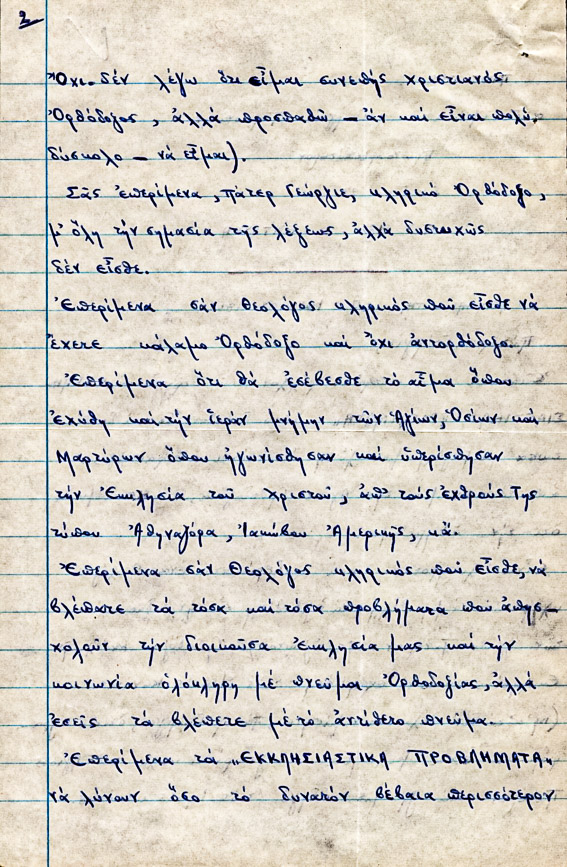 2
Ὄχι. δέν λέγω ὅτι εἶμαι συνεπής χριστιανός
Ὀρθόδοξος, ἀλλά προσπαθῶ – ἄν καί εἶναι πολύ
δύσκολο – νά εἶμαι).
Σᾶς ἐπερίμενα, πάτερ Γεώργιε, κληρικό Ὀρθόδοξο,
μ' ὅλη τήν σημασία τῆς λέξεως, ἀλλά δυστυχῶς
δέν εἶσθε.
Ἐπερίμενα σάν θεολόγος κληρικός πού εἶσθε νά
ἔχετε κάλαμο Ὀρθόδοξο καί ὄχι ἀντορθόδοξο.
Ἐπερίμενα ὅτι θά ἐσέβεσθε τό αἷμα ὅπου
ἐχύθη καί τήν ἱεράν μνήμην τῶν Ἁγίων, Ὁσίων καί
Μαρτύρων ὅπου ἠγωνίσθησαν καί ὑπερίσπησαν
τήν Ἐκκλησία τοῦ Χριστοῦ, ἀπ' τούς ἐχθρούς Της
τύπου Ἀθηναγόρα, Ἰακώβου Ἀμερικῆς, κ.ἄ.
Ἐπερίμενα σάν Θεολόγος κληρικός πού εἶσθε, νά
βλέπατε τά τόσα καί τόσα προβλήματα πού ἀπησ–
χολοῦν τήν διοικοῦσα Ἐκκλησία μας καί τήν
κοινωνία ὁλόκληρη μέ πνεῦμα Ὀρθοδοξίας, ἀλλά
ἐσεῖς τά βλέπετε μέ τό ἀντίθετο πνεῦμα.
Ἐπερίμενα τά „ΕΚΚΛΗΣΙΑΣΤΙΚΑ ΠΡΟΒΛΗΜΑΤΑ„
νά λύνουν ὅσο τό δυνατόν βέβαια περισσότερον